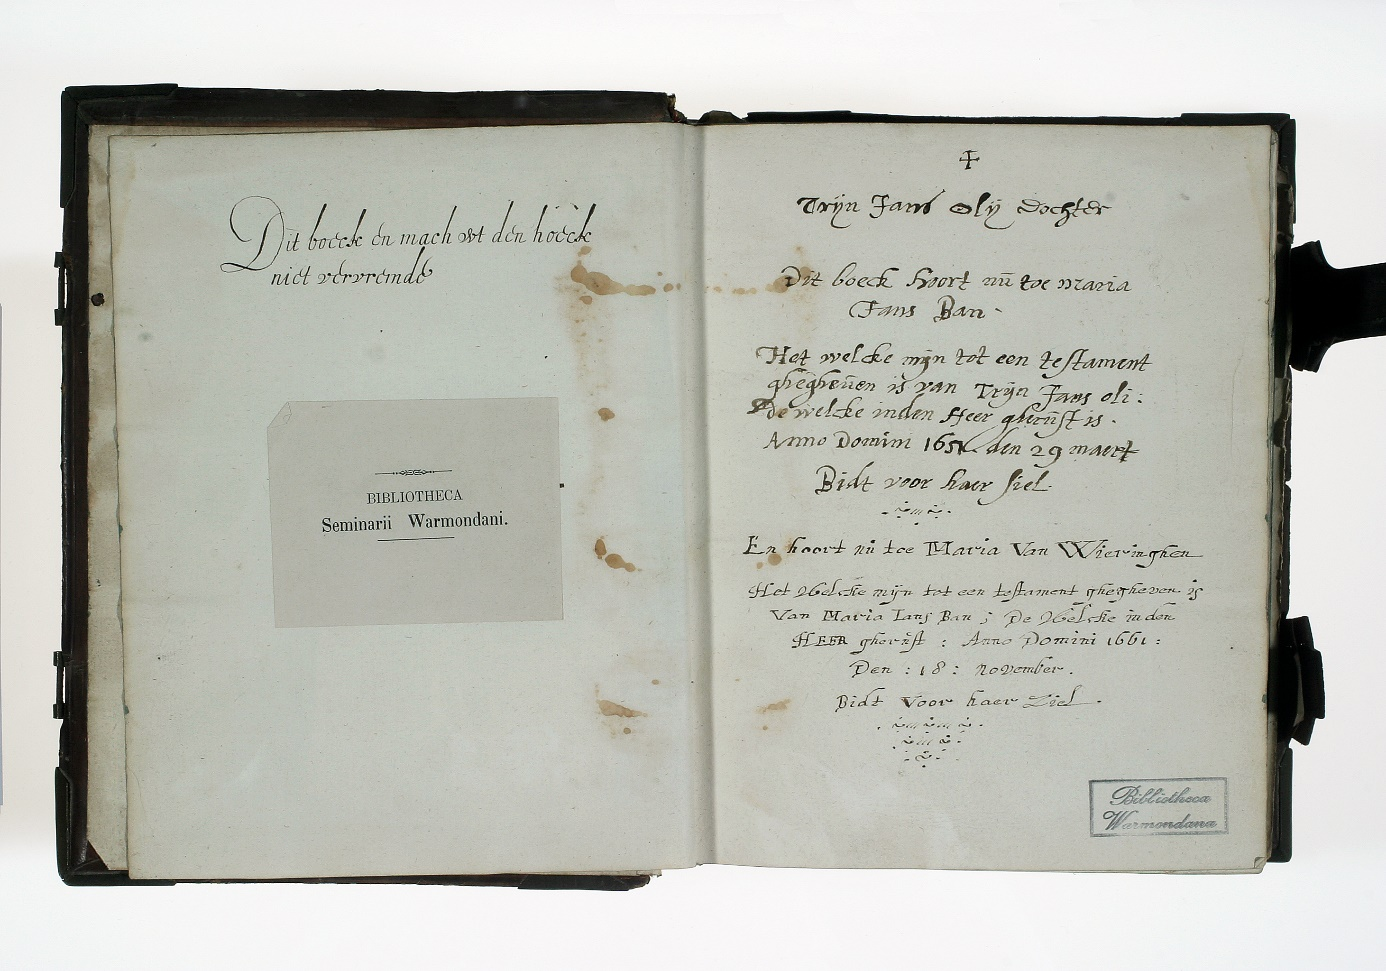 Dit boeck en mach wt den hoeck
niet vervremde
BIBLIOTHECA
Seminarii Warmondani.
Trijn Jans Olij dochter
Dit boeck hoort nū toe maria
Jans Ban
Het welcke mijn tot een testament
gheghevē is van Trijn Jans oli:
De welcke inden Heer gherūst is.
Anno Domini 1651 den 29 maert
Bidt voor haer siel.
En hoort nū toe Maria Van Wieringhen
Het Welcke mijn tot een testament ghegheven is
Van Maria Ians Ban ; De Welcke inden
HEER gherūst : Anno Domini 1661 :
Den : 18 : november.
Bidt voor haer Ziel.
Bibliotheca
Warmondana